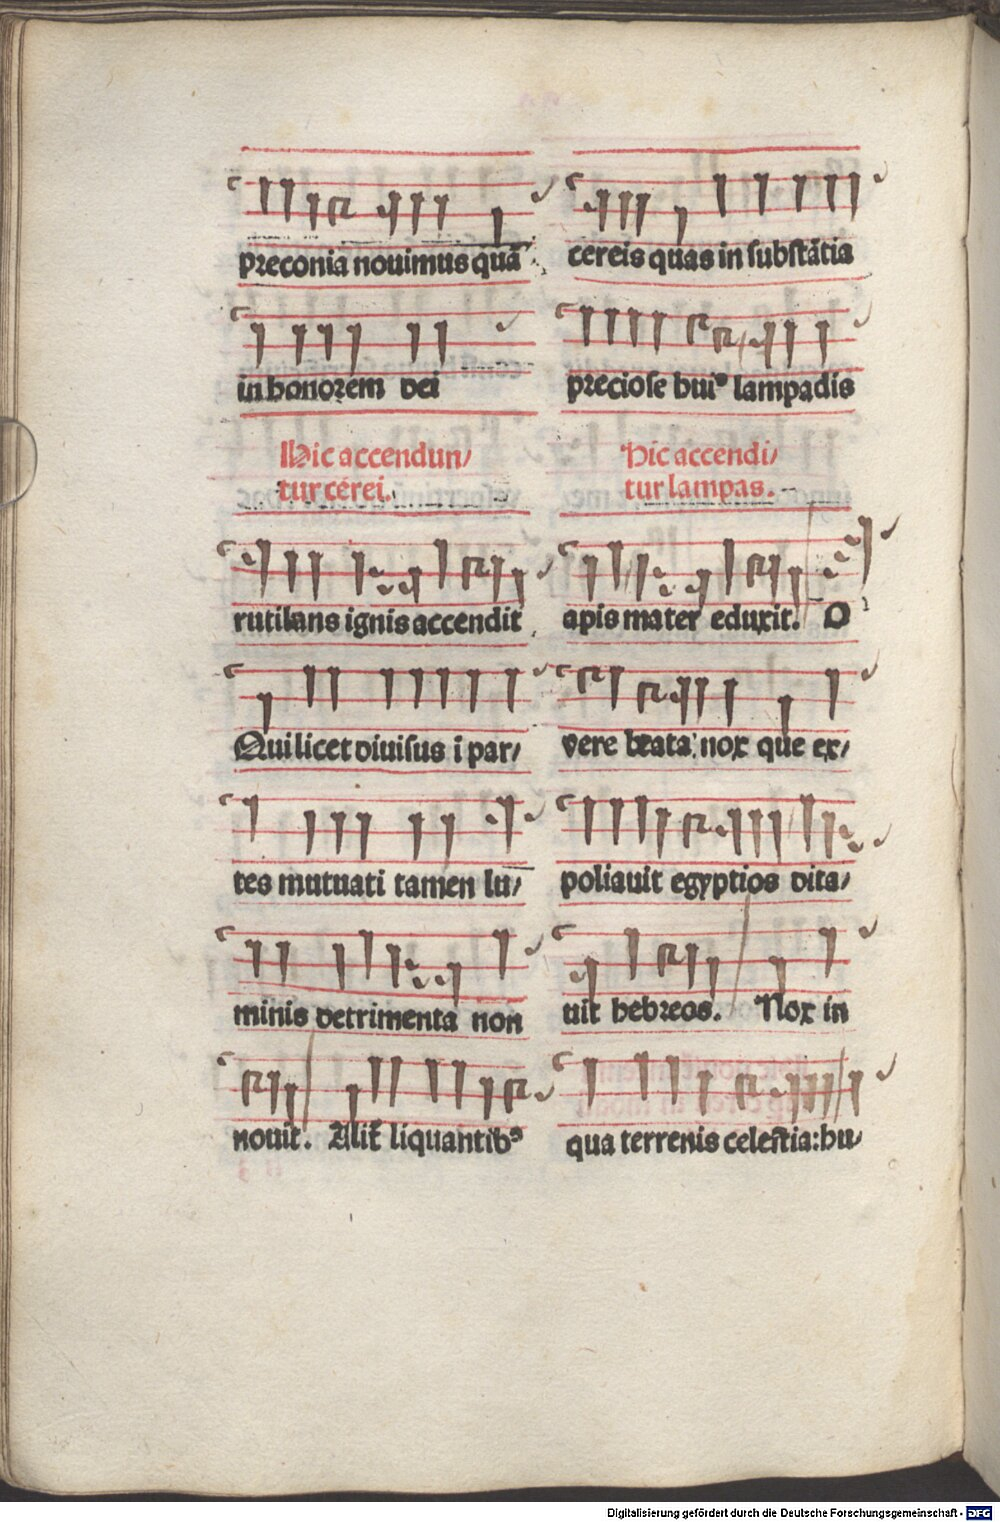 preconia nouimus quā
in honorem dei
Hic accendun/
tur cerei.
rutilans ignis accendit
Qui licet diuisus i par/
tes mutuati tamen lu/
minis detrimenta non
nouit. Alit̄ liquantibꝰ
cereis quas in substātia
preciose huiꝰ lampadis
Hic accendi/
tur lampas.
apis mater eduxit. O
vere beata nox que ex/
poliauit egyptios dita/
uit hebreos. Nox in
qua terrenis celestia: hu/
Digitalisierung gefördert durch die Deutsche Forschungsgemeinschaft - DFG